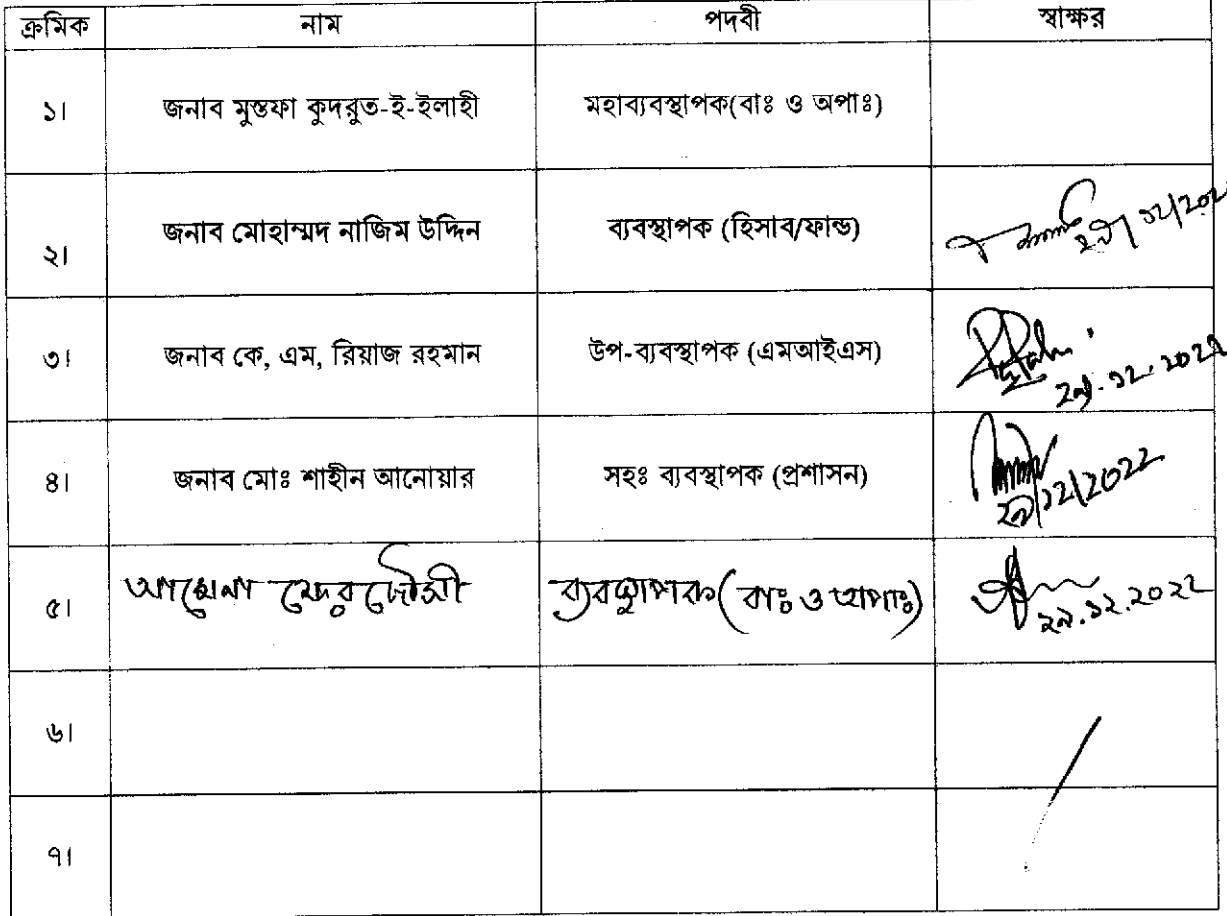 ক্রমিক নাম পদবী স্বাক্ষর
১। জনাব মুস্তফা কুদরুত-ই-ইলাহী মহাব্যবস্থাপক(বাঃ ও অপাঃ)
২। জনাব মোহাম্মদ নাজিম উদ্দিন ব্যবস্থাপক (হিসাব/ফান্ড)
৩। জনাব কে, এম, রিয়াজ রহমান উপ-ব্যবস্থাপক (এমআইএস) ২৯.১২.২০২২
৪। জনাব মোঃ শাহীন আনোয়ার সহঃ ব্যবস্থাপক (প্রশাসন) ২৯/১২/২০২২
৫। আমেনা ফেরদৌসী ব্যবস্থাপক (বাঃ ও অপাঃ) ২৯.১২.২০২২
৬।
৭।